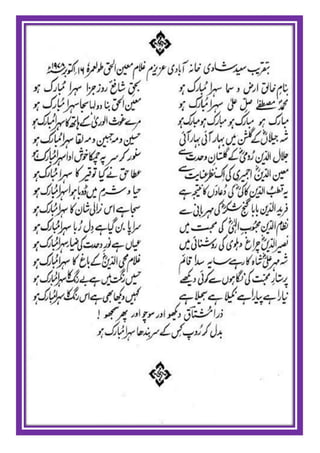 بتقریب سعید شادی خانہ آبادی عزیزم غلام معین الحق طولعمرہٗ ۱۶ اکتوبر ۱۹۷۸ء
بنامِ خالقِ ارض و سما سہرا مُبارک ہو بحقِ شافعِ روزِ جزا سہرا مُبارک ہو
محمدؐ مصطفٰے صلِّ علیٰ سہرا مُبارک ہو معین الحق بنا دولہا سجا سہرا مبارک ہو
مبارک ہو مبارک ہو مبارک ہو مبارک ہو شہِ غوث الوریٰ کے ہاتھ کا سہرا مبارک ہو
شہِ جیلاںؓ کے گلشن میں بہار آئی بہار آئی حسین و مہ جبین و مہ لقا سہرا مبارک ہو
جلال الدین رومیؒ کے گلستانِ وحدت سے سنور کر سر پہ خوش ادا سہرا مبارک ہو
معین الدین اجمیری کی اک نظرِ عنایت سے عطا حق نے کیا توقیر کا سہرا مبارک ہو
یہ قطب الدین کاکیؒ کی دُعاؤں کا نتیجہ ہے حیا و شرم میں ڈوبا ہوا سہرا مبارک ہو
فرید الدین بابا گنج شکرؒ کی مہربانی ہے سجا ہے اس نرالی شان کا سہرا مبارک ہو
نظام الدین محبوبِ الٰہیؒ کی محبت میں سراپا دل رُبا سہرا مبارک ہو
نصیر الدین چراغ دہلوی کی روشنائی میں عیاں ہے نورِ وحدت کی ضیا سہرا مبارک ہو
شہ مہر علیؒ شاہ کا رہے سایہ سدا قائم غلام محی الدینؒ کے باغ کا سہرا مبارک ہو
پرستارِ محبت کی نگاہوں سے کوئی دیکھے حسیں رنگت میں ہے بے رنگ سا سہرا مبارک ہو
نیارا ہے پیارا ہے نکیلا ہے سجیلا ہے کہیں دیکھا بھی ہے اس رنگ کا سہرا مبارک ہو
ذرا مشتاق دیکھو اور سوچو اور پھر سمجھو !
بدل کر رُوپ کس کے سر بندھا سہرا مُبارک ہو